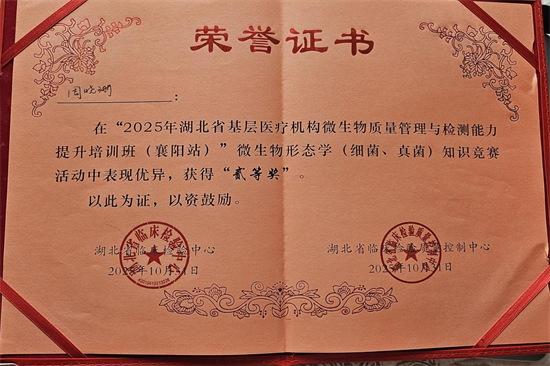 荣誉证书
周晓珊：
在“2025年湖北省基层医疗机构微生物质量管理与检测能力
提升培训班（襄阳站）”微生物形态学（细菌、真菌）知识竞赛
活动中表现优异，获得“贰等奖”。
以此为证，以资鼓励。
湖北省临床检验中心 湖北省临床检验质量控制中心
2025年10月31日 2025年10月31日